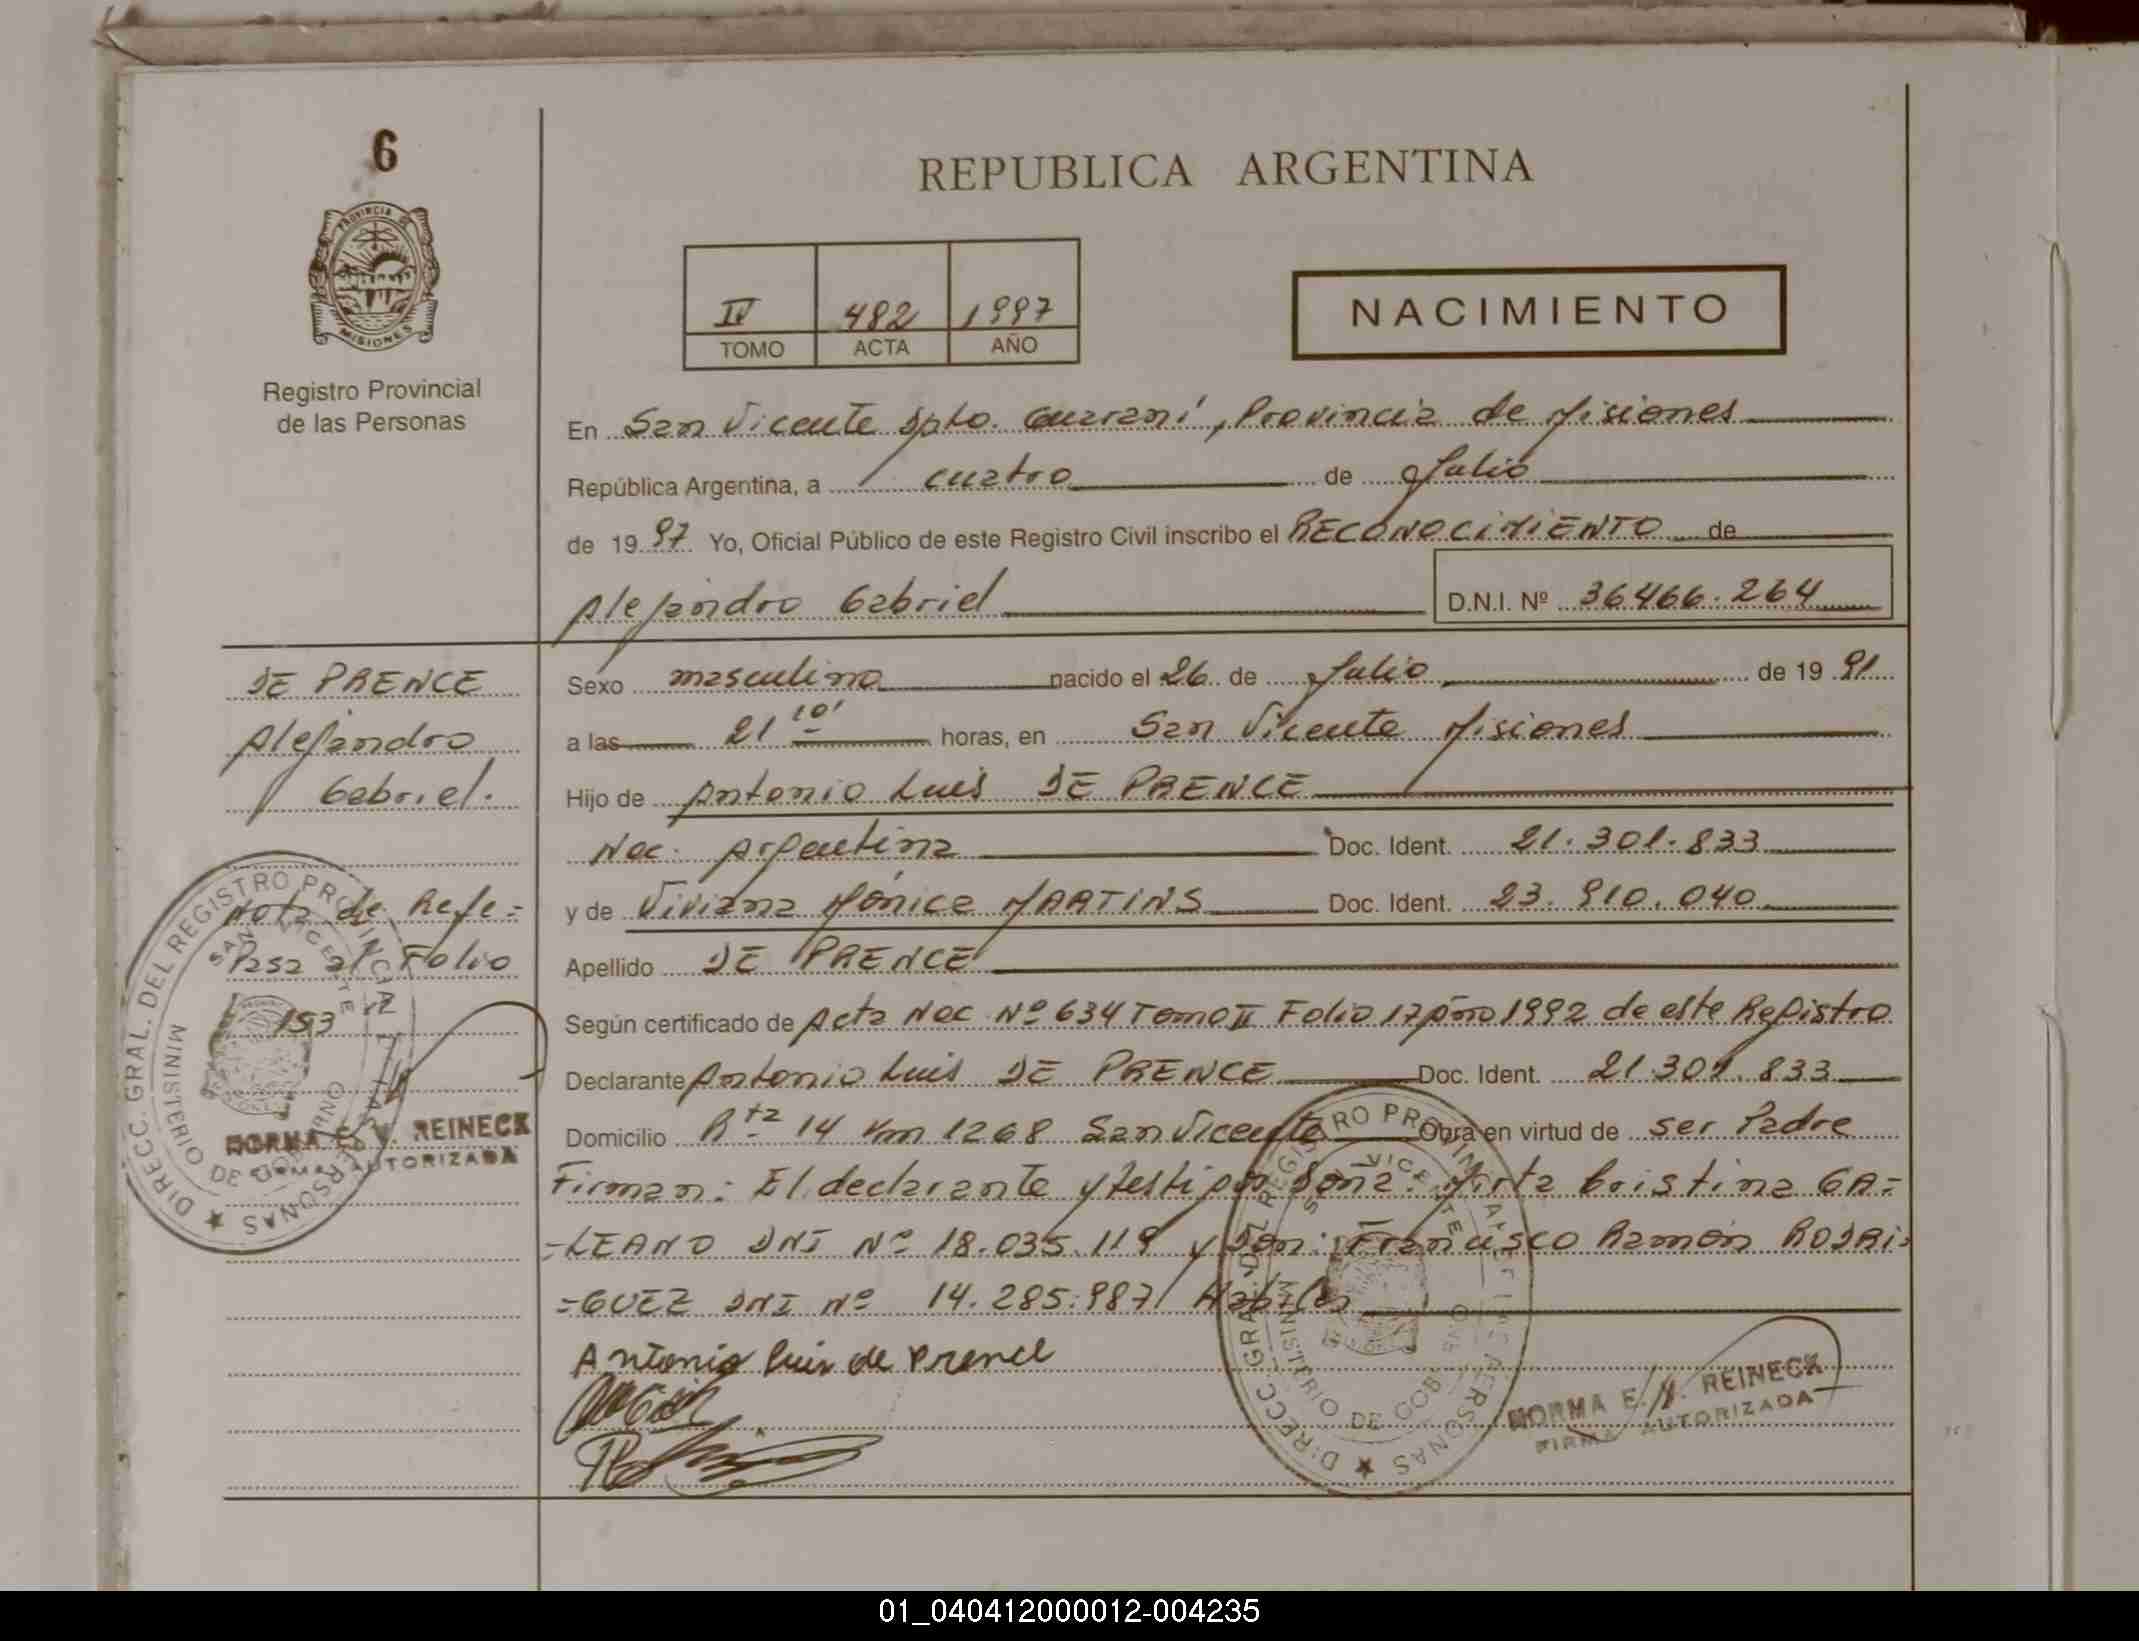 6
REPUBLICA ARGENTINA
PROVINCIA DE
MISIONES
IV 482 1997
TOMO ACTA AÑO
NACIMIENTO
Registro Provincial
de las Personas
En San Vicente Dpto. Guaraní, Provincia de Misiones
República Argentina, a cuatro de Julio
de 1997 Yo, Oficial Público de este Registro Civil inscribo el RECONOCIMIENTO de
Alejandro Gabriel
D.N.I. Nº 36466.264
DE PRENCE
Alejandro
Gabriel.
Sexo masculino nacido el 26 de Julio de 1991
a las 21 10' horas, en San Vicente Misiones
Hijo de Antonio Luis DE PRENCE
Nac. Argentina Doc. Ident. 21.301.833
y de Viviana Mónica MARTINS Doc. Ident. 23.910.040
Apellido DE PRENCE
Nota de Refe=
Pasa al Folio
153
Según certificado de Acta Nac Nº 634 Tomo II Folio 17 Año 1992 de este Registro
Declarante Antonio Luis DE PRENCE Doc. Ident. 21.301.833
Domicilio Rta 14 Km 1268 San Vicente Obra en virtud de ser Padre
Firman: El declarante y testigos Doña: Mirta Cristina GA=
=LEANO DNI Nº 18.035.119 y Don: Francisco Ramón RODRI=
=GUEZ DNI Nº 14.285.987 Habiles
Antonio Luis de Prence
DIRECC. GRAL. DEL REGISTRO PROVINCIAL DE LAS PERSONAS
SAN VICENTE
MINISTERIO DE GOBIERNO
NORMA E. V. REINECK
FIRMA AUTORIZADA
DIRECC. GRAL. DEL REGISTRO PROVINCIAL DE LAS PERSONAS
SAN VICENTE
MINISTERIO DE GOBIERNO
NORMA E. V. REINECK
FIRMA AUTORIZADA
01_040412000012-004235